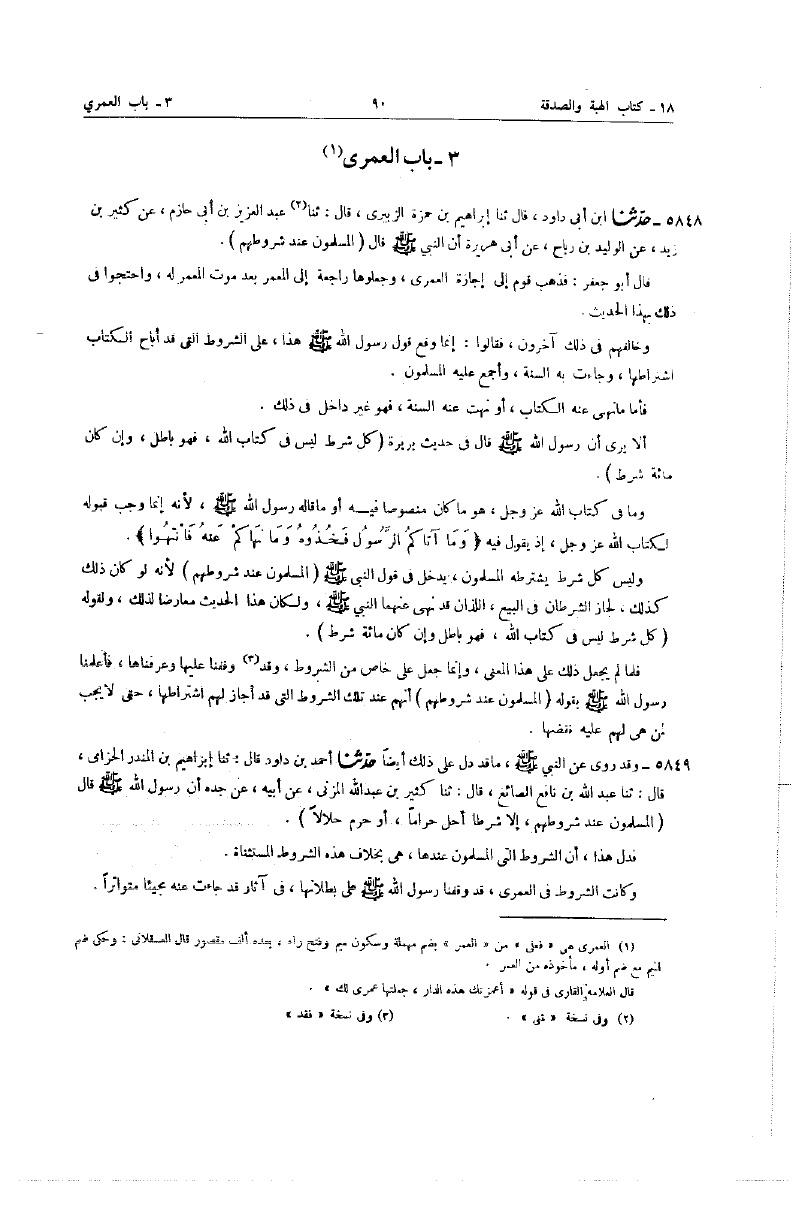 ١٨ - كتاب الهبة والصدقة ٩٠ ٣ - باب العمري
٣ - باب العمرى (١)
٥٨٤٨ - حدثنا ابن أبى داود ، قال ثنا إبراهيم بن حمزة الزبيرى ، قال : ثنا (٢) عبد العزيز بن أبى حازم ، عن كثير بن
زيد ، عن الوليد بن رباح ، عن أبى هريرة أن النبي ﷺ قال ( المسلمون عند شروطهم ) .
قال أبو جعفر : فذهب قوم إلى إجازة العمرى ، وجعلوها راجعة إلى المعمر بعد موت المعمر له ، واحتجوا فى
ذلك بهذا الحديث .
وخالفهم فى ذلك آخرون ، فقالوا : إنما وقع قول رسول الله ﷺ هذا ، على الشروط التى قد أباح الكتاب
اشتراطها ، وجاءت به السنة ، وأجمع عليه المسلمون .
فأما مانهى عنه الكتاب ، أو نهت عنه السنة ، فهو غير داخل فى ذلك .
ألا يرى أن رسول الله ﷺ قال فى حديث بريرة ( كل شرط ليس فى كتاب الله ، فهو باطل ، وإن كان
مائة شرط ) .
وما فى كتاب الله عز وجل ، هو ما كان منصوصا فيه أو ماقاله رسول الله ﷺ ، لأنه إنما وجب قبوله
لكتاب الله عز وجل ، إذ يقول فيه ﴿ وَمَا آتَاكُمُ الرَّسُولُ فَخُذُوهُ وَمَا نَهَاكُمْ عَنْهُ فَانْتَهُوا ﴾ .
وليس كل شرط يشترطه المسلمون ، يدخل فى قول النبي ﷺ ( المسلمون عند شروطهم ) لأنه لو كان ذلك
كذلك ، لجاز الشرطان فى البيع ، اللذان قد نهى عنهما النبي ﷺ ، ولكان هذا الحديث معارضا لذلك ، ولقوله
( كل شرط ليس فى كتاب الله ، فهو باطل وإن كان مائة شرط ) .
فلما لم يجعل ذلك على هذا المعنى ، وإنما جعل على خاص من الشروط ، وقد (٣) وقفنا عليها وعرفناها ، فأعلمنا
رسول الله ﷺ بقوله ( المسلمون عند شروطهم ) أنهم عند تلك الشروط التى قد أجاز لهم اشتراطها ، حتى لا يجب
لمن هى لهم عليه نقضها .
٥٨٤٩ - وقد روى عن النبي ﷺ ، ماقد دل على ذلك أيضاً حدثنا أحمد بن داود قال : ثنا إبراهيم بن المنذر الحزامى ،
قال : ثنا عبد الله بن نافع الصائغ ، قال : ثنا كثير بن عبدالله المزنى ، عن أبيه ، عن جده أن رسول الله ﷺ قال
( المسلمون عند شروطهم ، إلا شرطا أحل حراماً ، أو حرم حلالاً ) .
فدل هذا ، أن الشروط التى المسلمون عندها ، هى بخلاف هذه الشروط المستثناة .
وكانت الشروط فى العمرى ، قد وقفنا رسول الله ﷺ على بطلانها ، فى آثار قد جاءت عنه مجيئا متواتراً .
(١) العمرى هى « فعلى » من « العمر » بضم مهملة وسكون ميم وفتح راء ، بعده ألف مقصور قال العسقلانى : وحكى ضم
الميم مع ضم أوله ، مأخوذه من العمر .
قال العلامة القارى فى قوله « أعمرتك هذه الدار ، جعلتها عمرى لك » .
(٢) وفى نسخة « ثنى » . (٣) وفى نسخة « فقد »